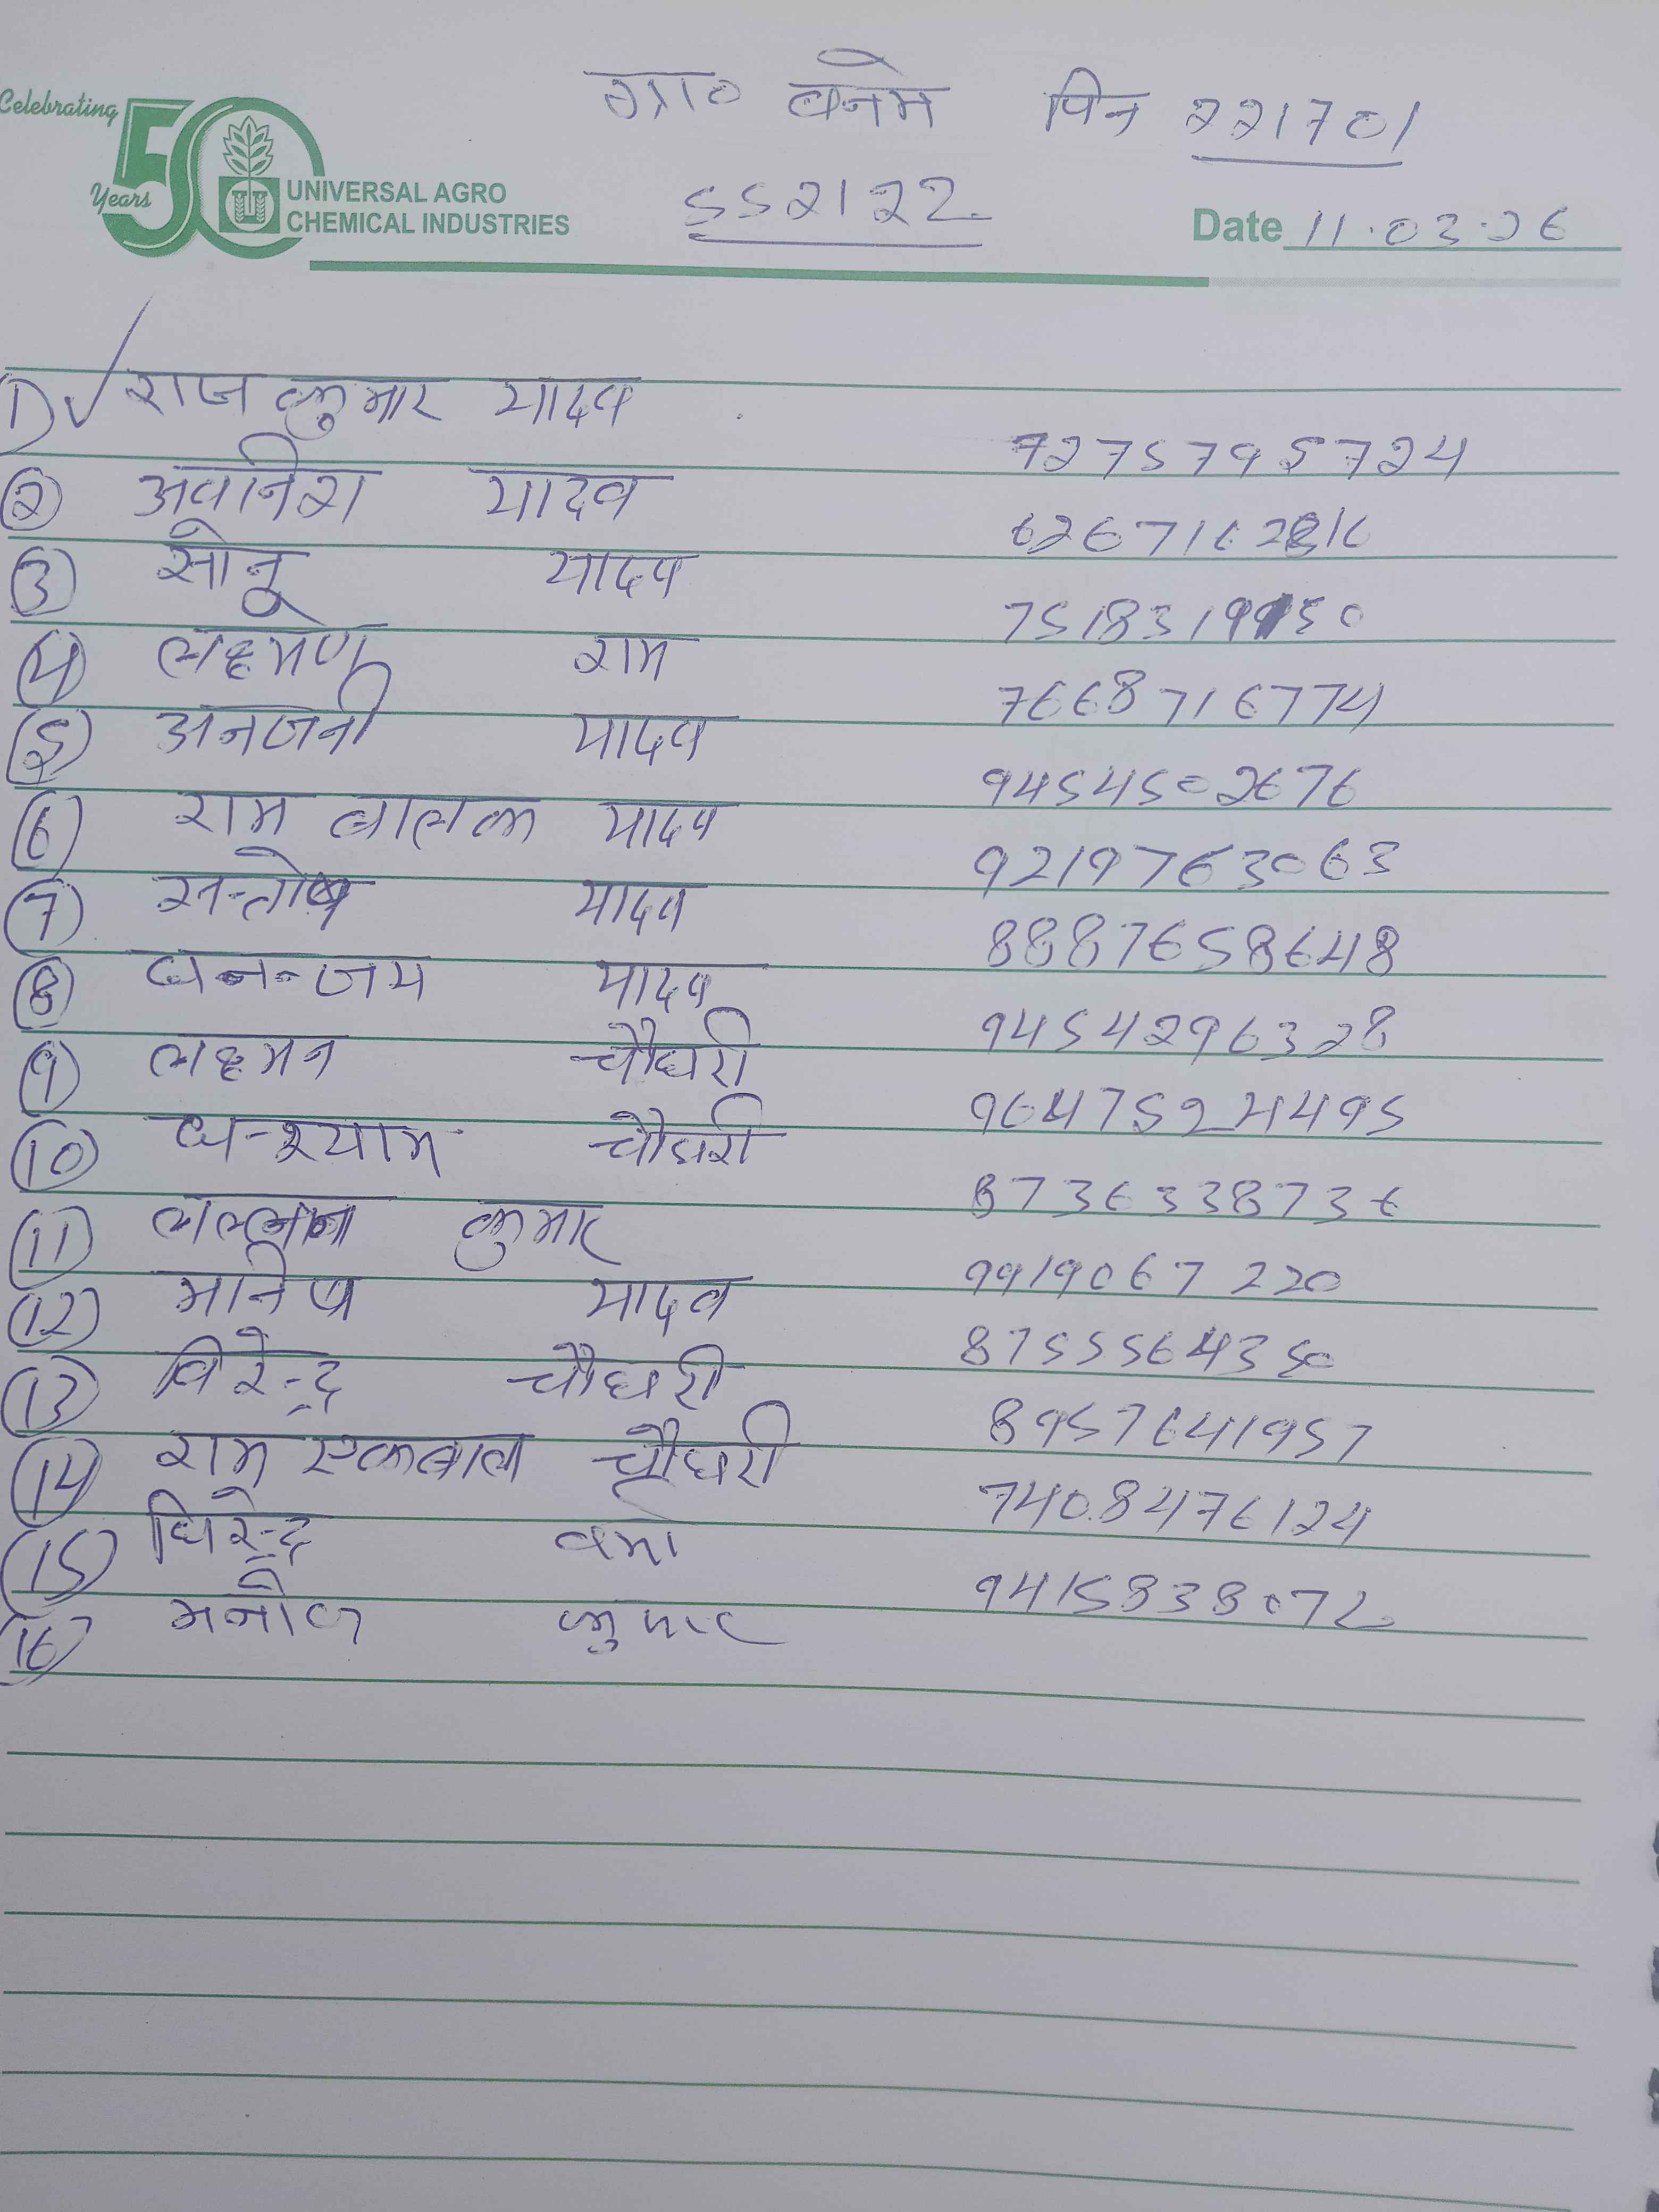 ग्रा० बनेम पिन २२1701
Celebrating 50 Years
UNIVERSAL AGRO
CHEMICAL INDUSTRIES
552122
Date 11.03.26
1) राज कुमार यादव
7275795724
2 अवनिश यादव
6267162816
3 सोनू यादव
7518319950
4 लक्ष्मण राम
7668716774
5 अनजनी यादव
9454502676
6 राम बालक यादव
9219763063
7 सन्तोष यादव
8887658648
8 धनन्जय यादव
9454296328
9 लक्ष्मन चौधरी
9647524495
10 घनश्याम चौधरी
8736338736
11 लल्लन कुमार
9919067220
12 मनिष यादव
8755564350
13 विरेन्द्र चौधरी
8957641957
14 राम एकबाल चौधरी
7408476124
15 धिरेन्द्र वर्मा
9415838072
16 मनोज कुमार